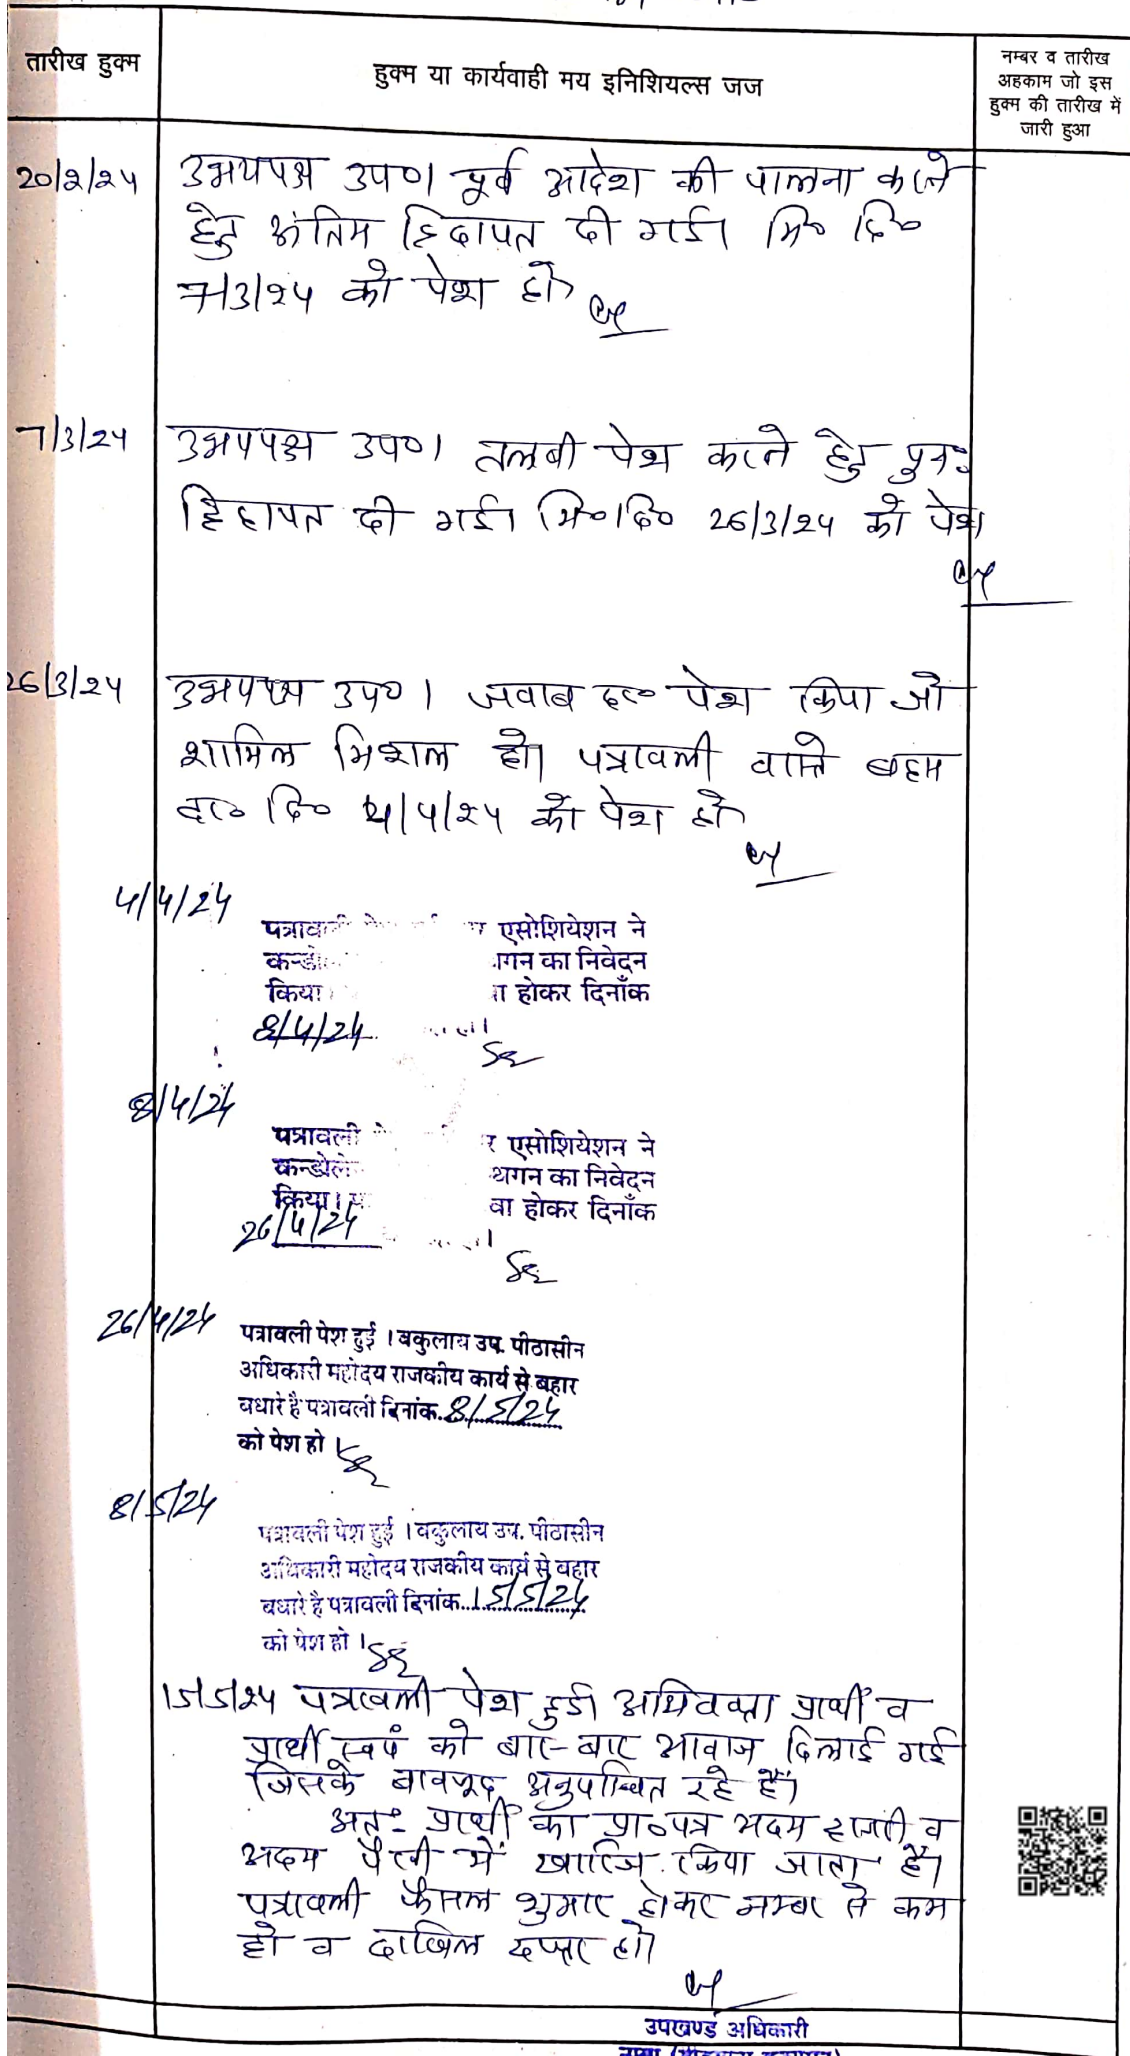 तारीख हुक्म
हुक्म या कार्यवाही मय इनिशियल्स जज
नम्बर व तारीख
अहकाम जो इस
हुक्म की तारीख में
जारी हुआ
20/2/24
उभयपक्ष उप०। पूर्व आदेश की पालना करने
हेतु अंतिम हिदायत दी गई। मि० दि०
7/3/24 को पेश हो
7/3/24
उभयपक्ष उप०। तलबी पेश करने हेतु पुनः
हिदायत दी गई। मि०दि० 26/3/24 को पेश
26/3/24
उभयपक्ष उप०। जवाब द० पेश किया जो
शामिल मिशल हो। पत्रावली वास्ते बहस
द० दि० 4/4/24 को पेश हो
4/4/24
एसोशियेशन ने
का निवेदन
किया होकर दिनाँक
8/4/24
8/4/24
पत्रावली एसोशियेशन ने
का निवेदन
किया। होकर दिनाँक
26/4/24
26/4/24
पत्रावली पेश हुई । वकुलाय उप. पीठासीन
अधिकारी महोदय राजकीय कार्य से बहार
पधारे है पत्रावली दिनांक 8/5/24
को पेश हो
8/5/24
पत्रावली पेश हुई । वकुलाय उप. पीठासीन
अधिकारी महोदय राजकीय कार्य से बहार
पधारे है पत्रावली दिनांक 15/5/24
को पेश हो ।
15/5/24 पत्रावली पेश हुई। अभिवक्ता प्रार्थी व
प्रार्थी स्वयं को बार-बार आवाज दिलाई गई
जिसके बावजूद अनुपस्थित रहे हैं।
अतः प्रार्थी का प्रा०पत्र अदम हाजरी व
अदम पैरवी में खारिज किया जाता है।
पत्रावली फैसल शुमार होकर नम्बर से कम
हो व दाखिल दफ्तर हो।
उपखण्ड अधिकारी